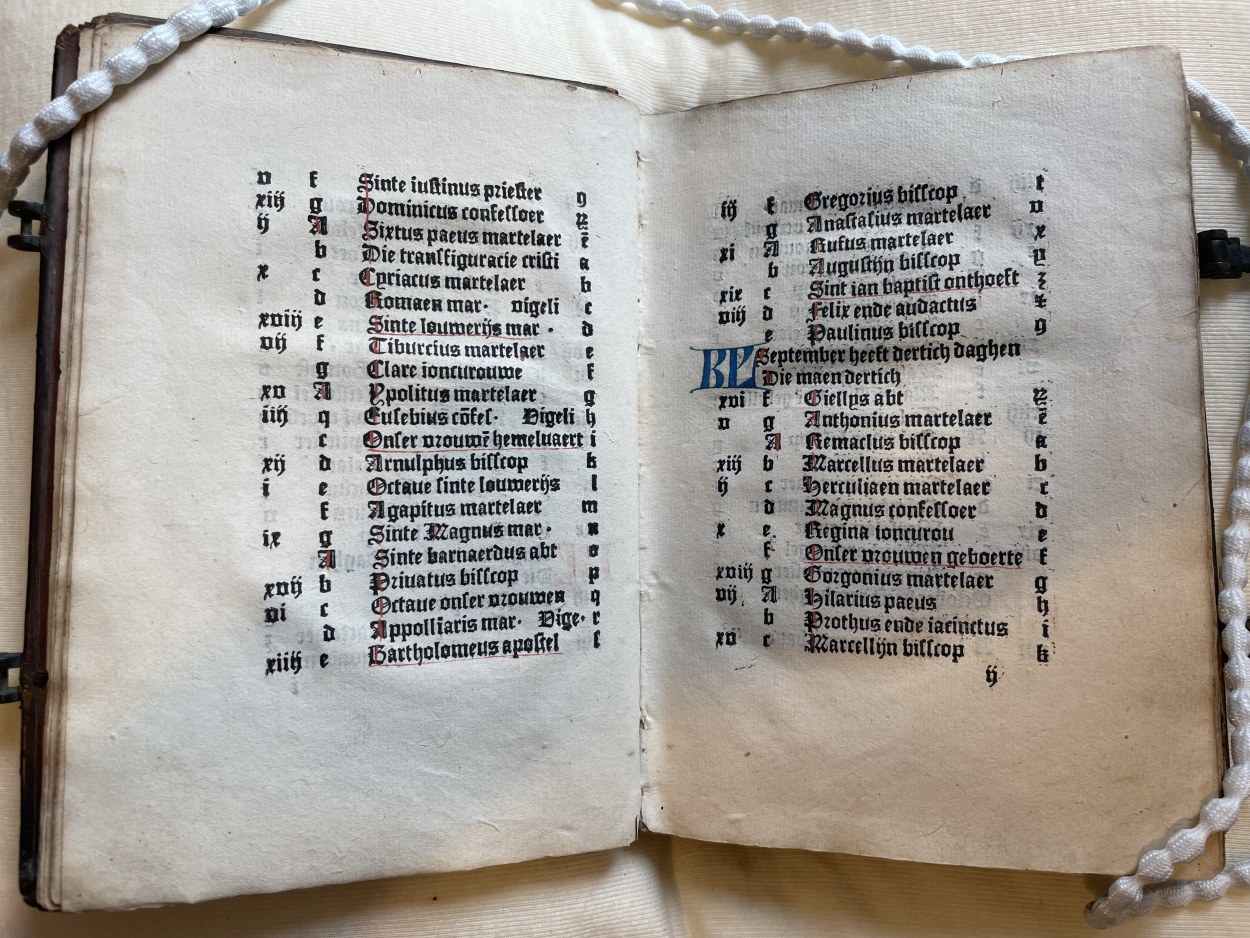 v f Sinte iustinus priester 9
xiij g Dominicus confessoer
ij A Sixtus paeus martelaer ē
b Die transfiguracie cristi a
x c Cyriacus martelaer b
d Romaen mar· vigeli c
xviij e Sinte louwerijs mar· d
vij f Tiburcius martelaer e
g Clare ioncurouwe f
xv A Ypolitus martelaer g
iiij q Eusebius cōfes· Vigeli h
c Onser vrouwē hemeluaert i
xij d Arnulphus bisscop k
i e Octaue sinte louwerijs l
f Agapitus martelaer m
ix g Sinte Magnus mar· n
A Sinte barnaerdus abt o
xvij b Priuatus bisscop p
vi c Octaue onser vrouwen q
d Appolliaris mar· Vige· r
xiiij e Bartholomeus apostel s
iij f Gregorius bisscop t
g Anastasius martelaer v
xi A Rufus martelaer x
b Augustijn bisscop y
xix c Sint ian baptist onthoeft z
viij d Felix ende audactus
e Paulinus bisscop 9
KL September heeft dertich daghen
Die maen dertich
xvi f Giellys abt
v g Anthonius martelaer ē
A Remaclus bisscop a
xiij b Marcellus martelaer b
ij c Herculiaen martelaer c
d Magnus confessoer d
x e Regina ioncurou e
f Onser vrouwen geboerte f
xviij g Gorgonius martelaer g
vij A Hilarius paeus h
b Prothus ende iacinctus i
xv c Marcellijn bisscop k
ij